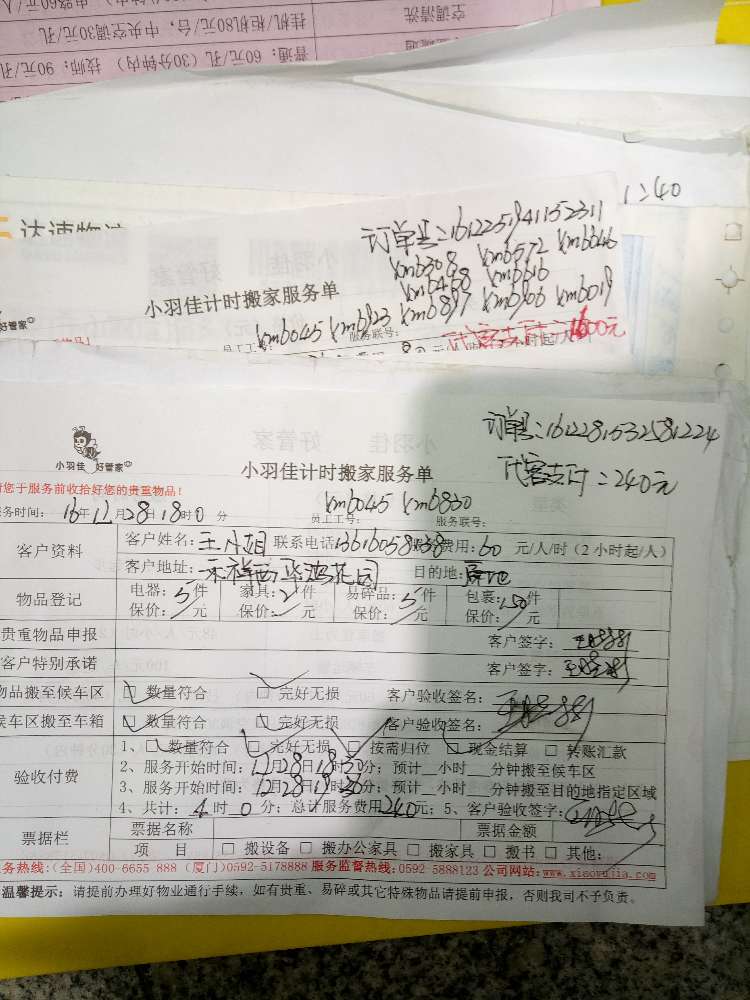 空调清洗
挂机/柜机80元/台，中央空调30元/孔
普通：60元/孔（30分钟内）技师：90元/孔
1240
达速物流
订单号:16122519411152311
xmb308 xmb572 xmb046
xmb458 xmb616
小羽佳计时搬家服务单
xmb045 xmb923 xmb897 xmb906 xmb019
好管家
员工工号:
服务联号:
订单号:161228153258 1224
小羽佳 好管家
小羽佳计时搬家服务单
代客支付=240元
您于服务前收拾好您的贵重物品！
xmb045 xmb830
务时间: 16年12月28日18时0分 员工工号: 服务联号:
客户资料
客户姓名: 王小姐 联系电话 费用:60 元/人/时（2小时起/人）
客户地址: 目的地:
物品登记
电器:5件 家具:2件 易碎品:5件 包裹:50件
保价: 元 保价: 元 保价: 元 保价: 元
贵重物品申报 客户签字:
客户特别承诺 客户签字:
物品搬至候车区 □ 数量符合 □ 完好无损 客户验收签名:
候车区搬至车箱 □ 数量符合 □ 完好无损 客户验收签名:
验收付费
1、□ 数量符合 □ 完好无损 □ 按需归位 □ 现金结算 □ 转账汇款
2、服务开始时间: 12月28日18时30分; 预计__小时__分钟搬至候车区
3、服务开始时间: 12月28日19时30分; 预计__小时__分钟搬至目的地指定区域
4、共计: 4时0分; 总计服务费用240元; 5、客户验收签字:
票据栏
票据名称 票据金额
项 目 □ 搬设备 □ 搬办公家具 □ 搬家具 □ 搬书 □ 其他:
务热线:(全国)400-6655 888 (厦门)0592-5178888 服务监督热线:0592-5888123 公司网站:www.xiaoyujia.com
温馨提示: 请提前办理好物业通行手续，如有贵重、易碎或其它特殊物品请提前申报，否则我司不予负责。